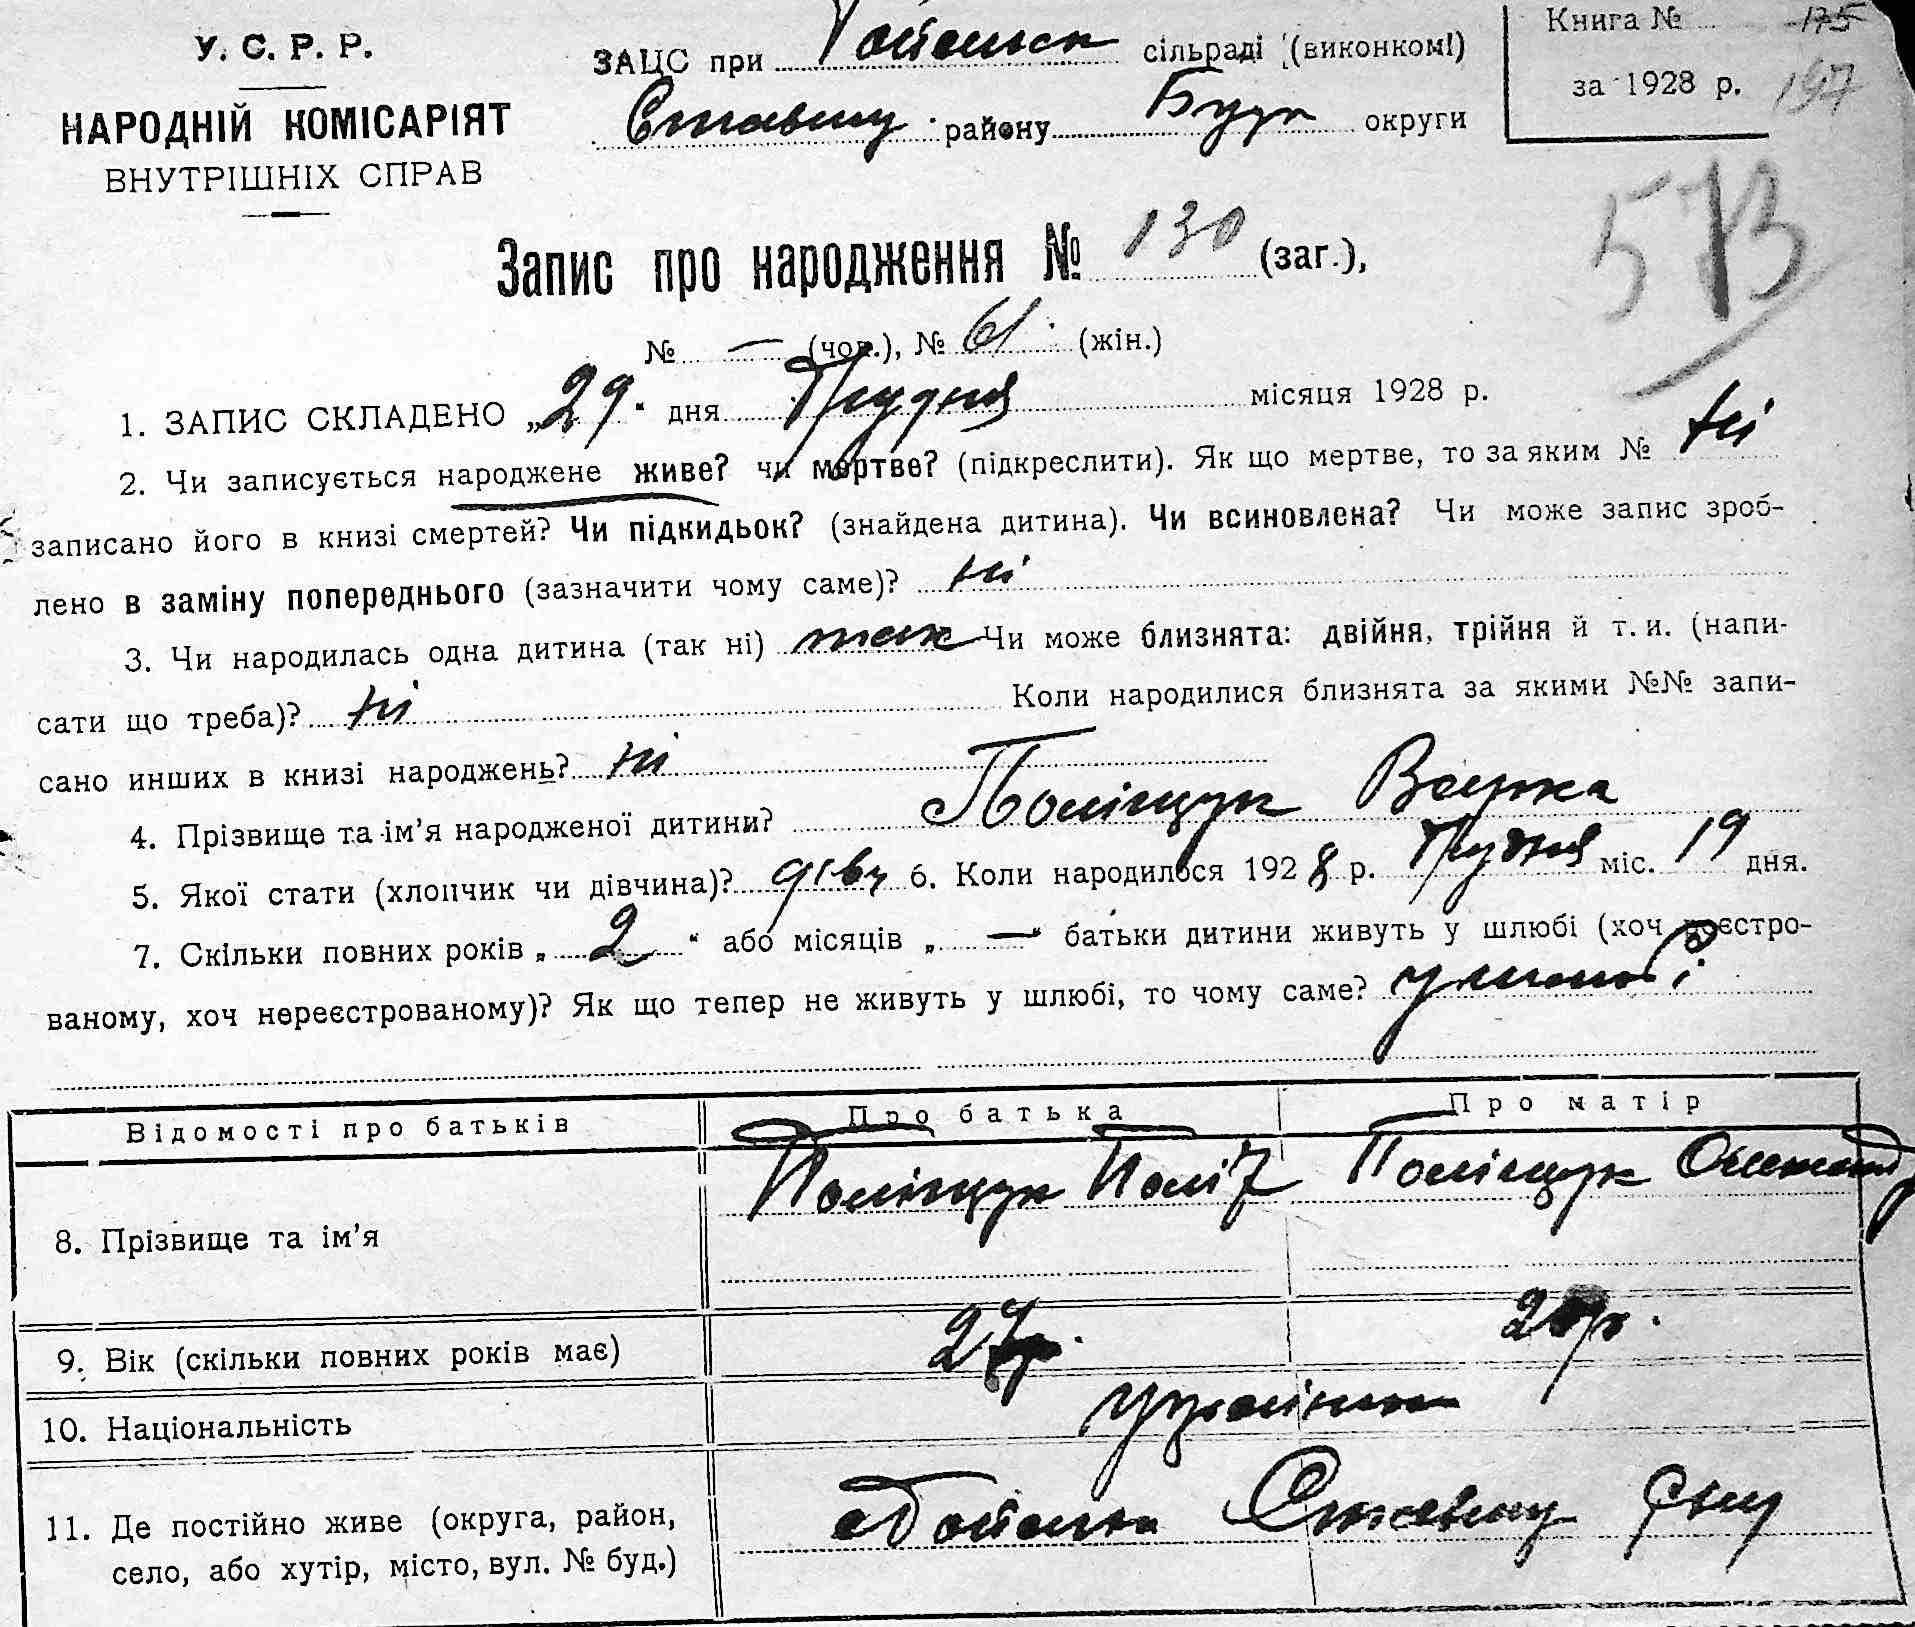 У. С. Р. Р.
НАРОДНІЙ КОМІСАРІЯТ
ВНУТРІШНІХ СПРАВ
ЗАЦС при сільраді (виконкомі)
Ставищ. району округи
Книга № 175
за 1928 р. 197
573
Запис про народження № 130 (заг.),
№ — (чол.), № 61 (жін.)
1. ЗАПИС СКЛАДЕНО „29“ дня Грудня місяця 1928 р.
2. Чи записується народжене живе? чи мертве? (підкреслити). Як що мертве, то за яким № ні
записано його в книзі смертей? Чи підкидьок? (знайдена дитина). Чи всиновлена? Чи може запис зроб-
лено в заміну попереднього (зазначити чому саме)? ні
3. Чи народилась одна дитина (так ні) так Чи може близнята: двійня, трійня й т. и. (напи-
сати що треба)? ні Коли народилися близнята за якими №№ запи-
сано инших в книзі народжень? ні
4. Прізвище та ім’я народженої дитини? Поліщук Варка
5. Якої стати (хлопчик чи дівчина)? дівч 6. Коли народилося 1928 р. Грудня міс. 19 дня.
7. Скільки повних років „2“ або місяців „—“ батьки дитини живуть у шлюбі (хоч реєстро-
ваному, хоч нереєстрованому)? Як що тепер не живуть у шлюбі, то чому саме? у шлюбі
Відомості про батьків Про батька Про матір
8. Прізвище та ім’я Поліщук Поліщук
9. Вік (скільки повних років має)
10. Національність
11. Де постійно живе (округа, район,
село, або хутір, місто, вул. № буд.)